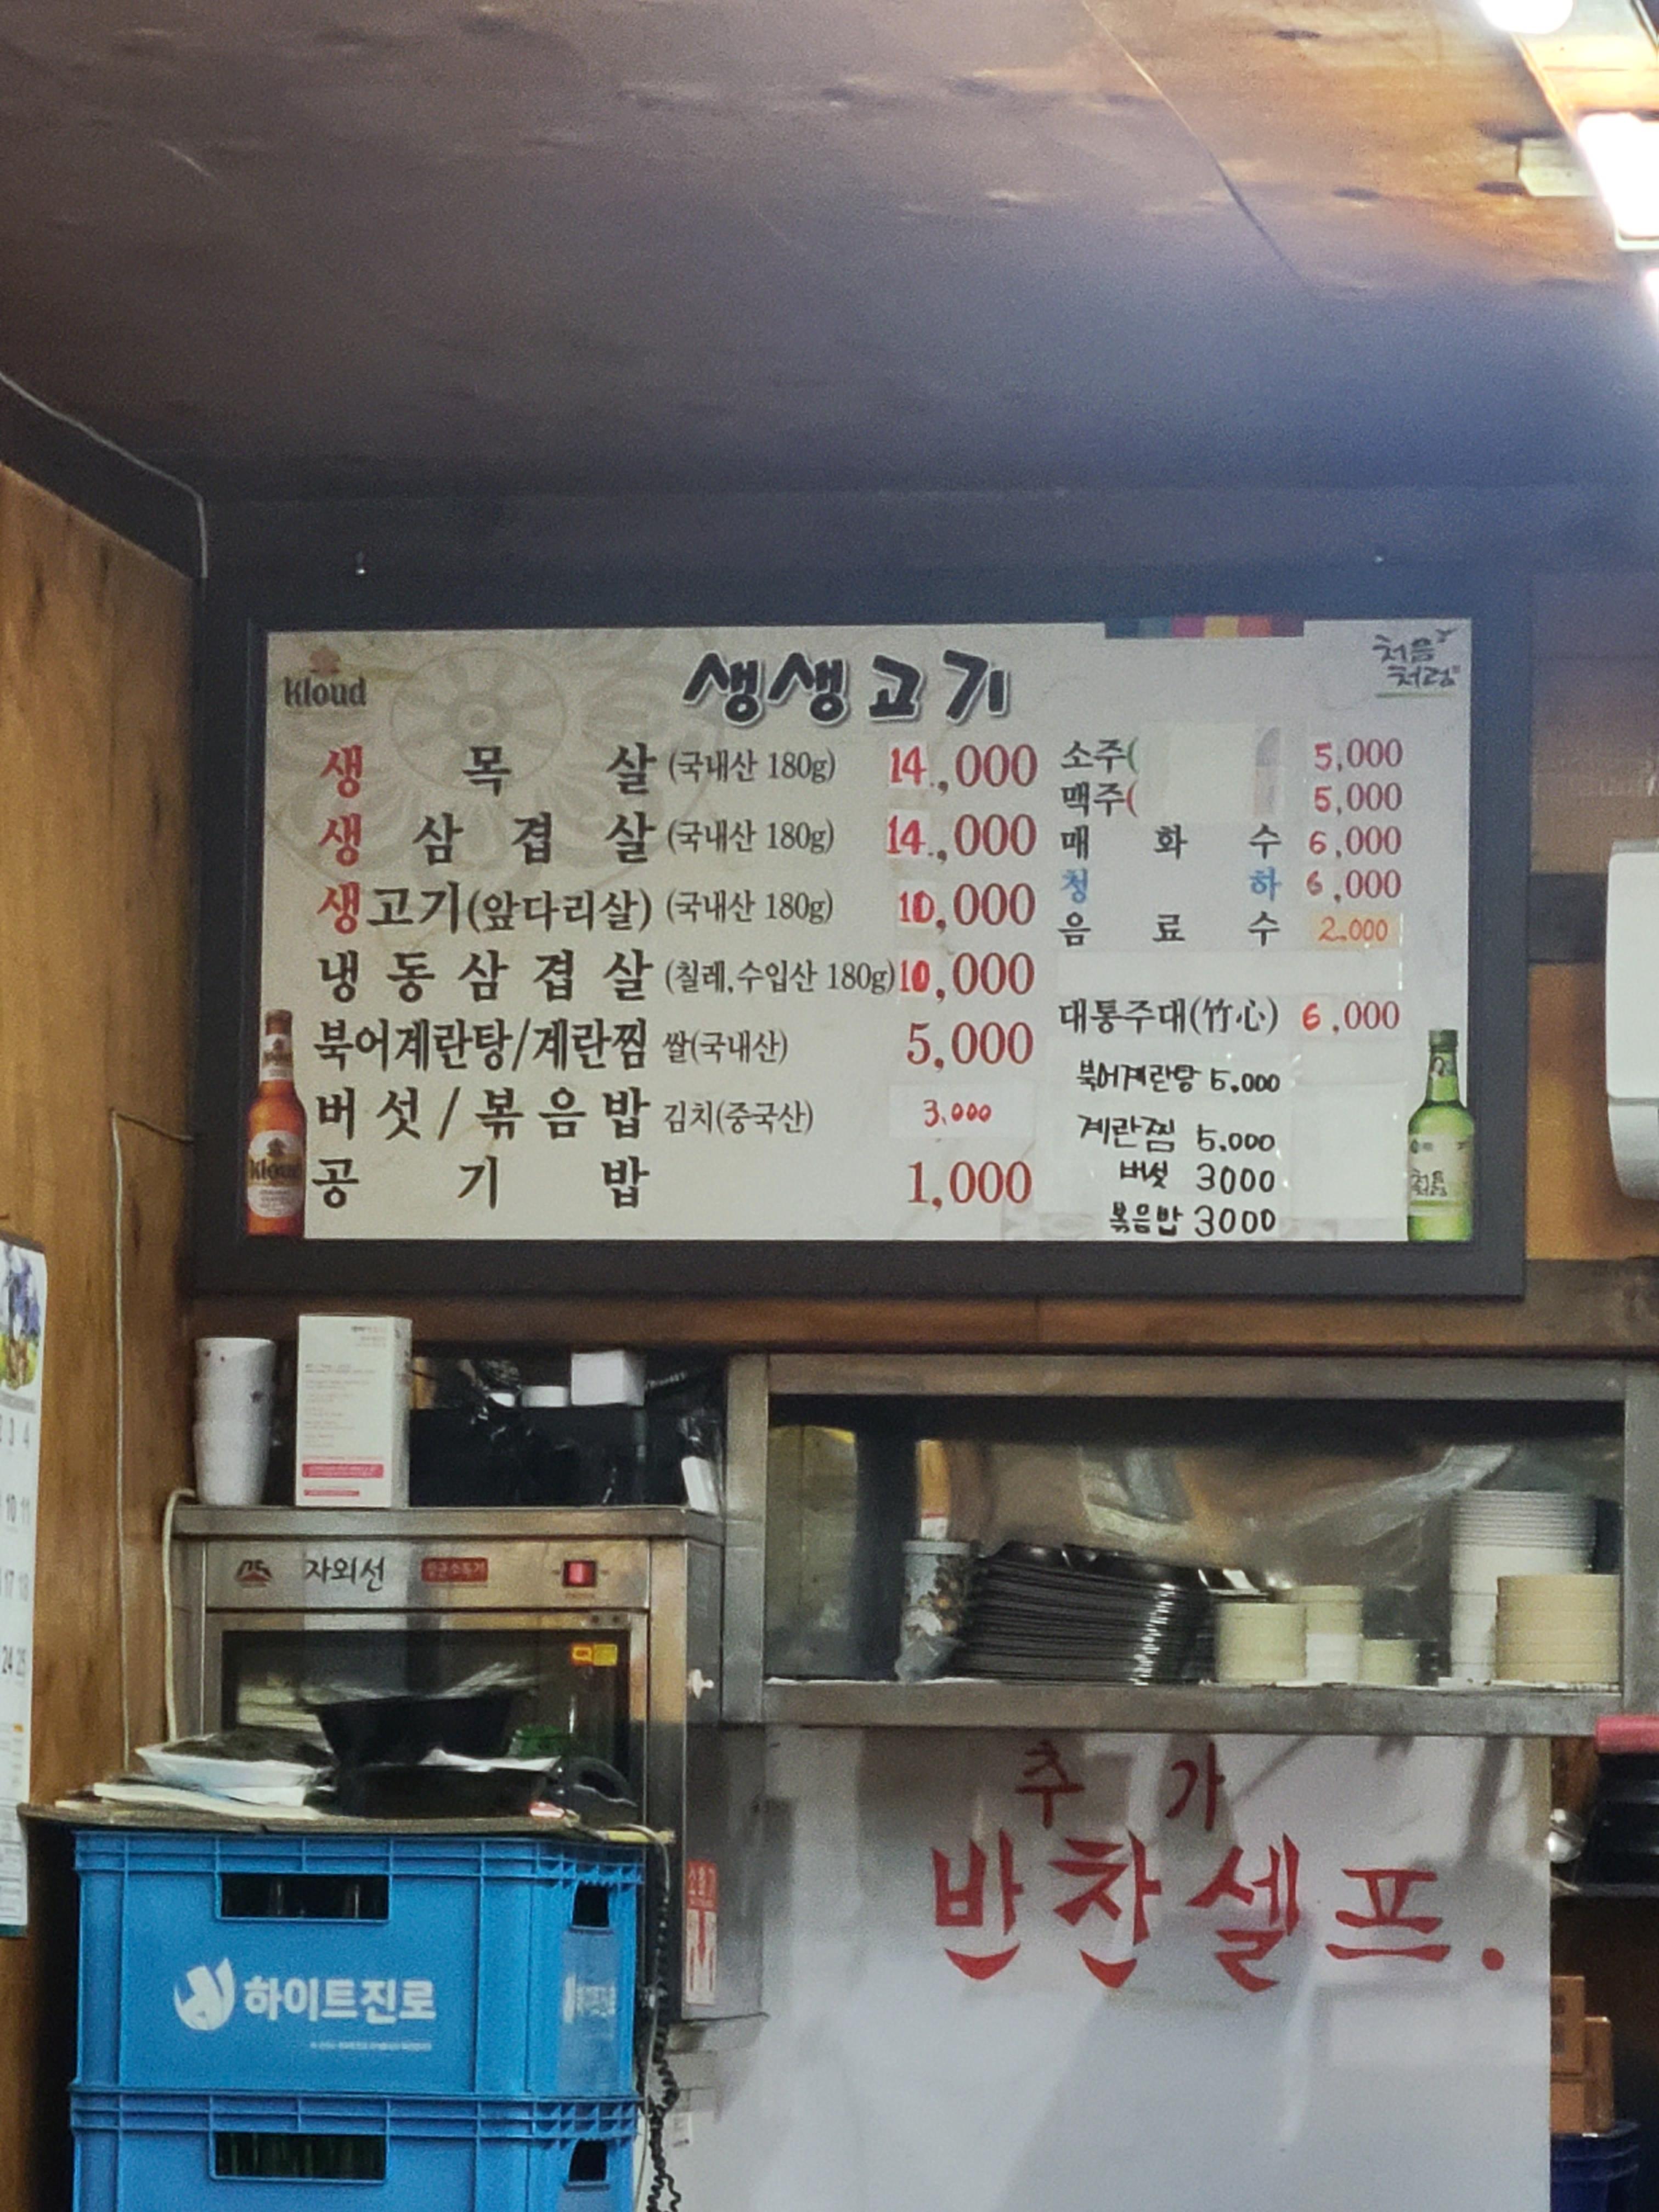 Kloud
생생고기
처음
처럼
생목살(국내산 180g) 14,000
생삼겹살(국내산 180g) 14,000
생고기(앞다리살)(국내산 180g) 10,000
냉동삼겹살(칠레,수입산 180g) 10,000
북어계란탕/계란찜 쌀(국내산) 5,000
버섯/볶음밥 김치(중국산) 3.000
공기밥 1,000
소주( 5,000
맥주( 5,000
매화수 6,000
청하 6,000
음료수 2.000
대통주대(竹心) 6,000
북어계란탕 5.000
계란찜 5.000
버섯 3000
볶음밥 3000
Kloud
처음
처럼
3 4
10 11
17 18
24 25
자외선
추가
반찬셀프.
하이트진로